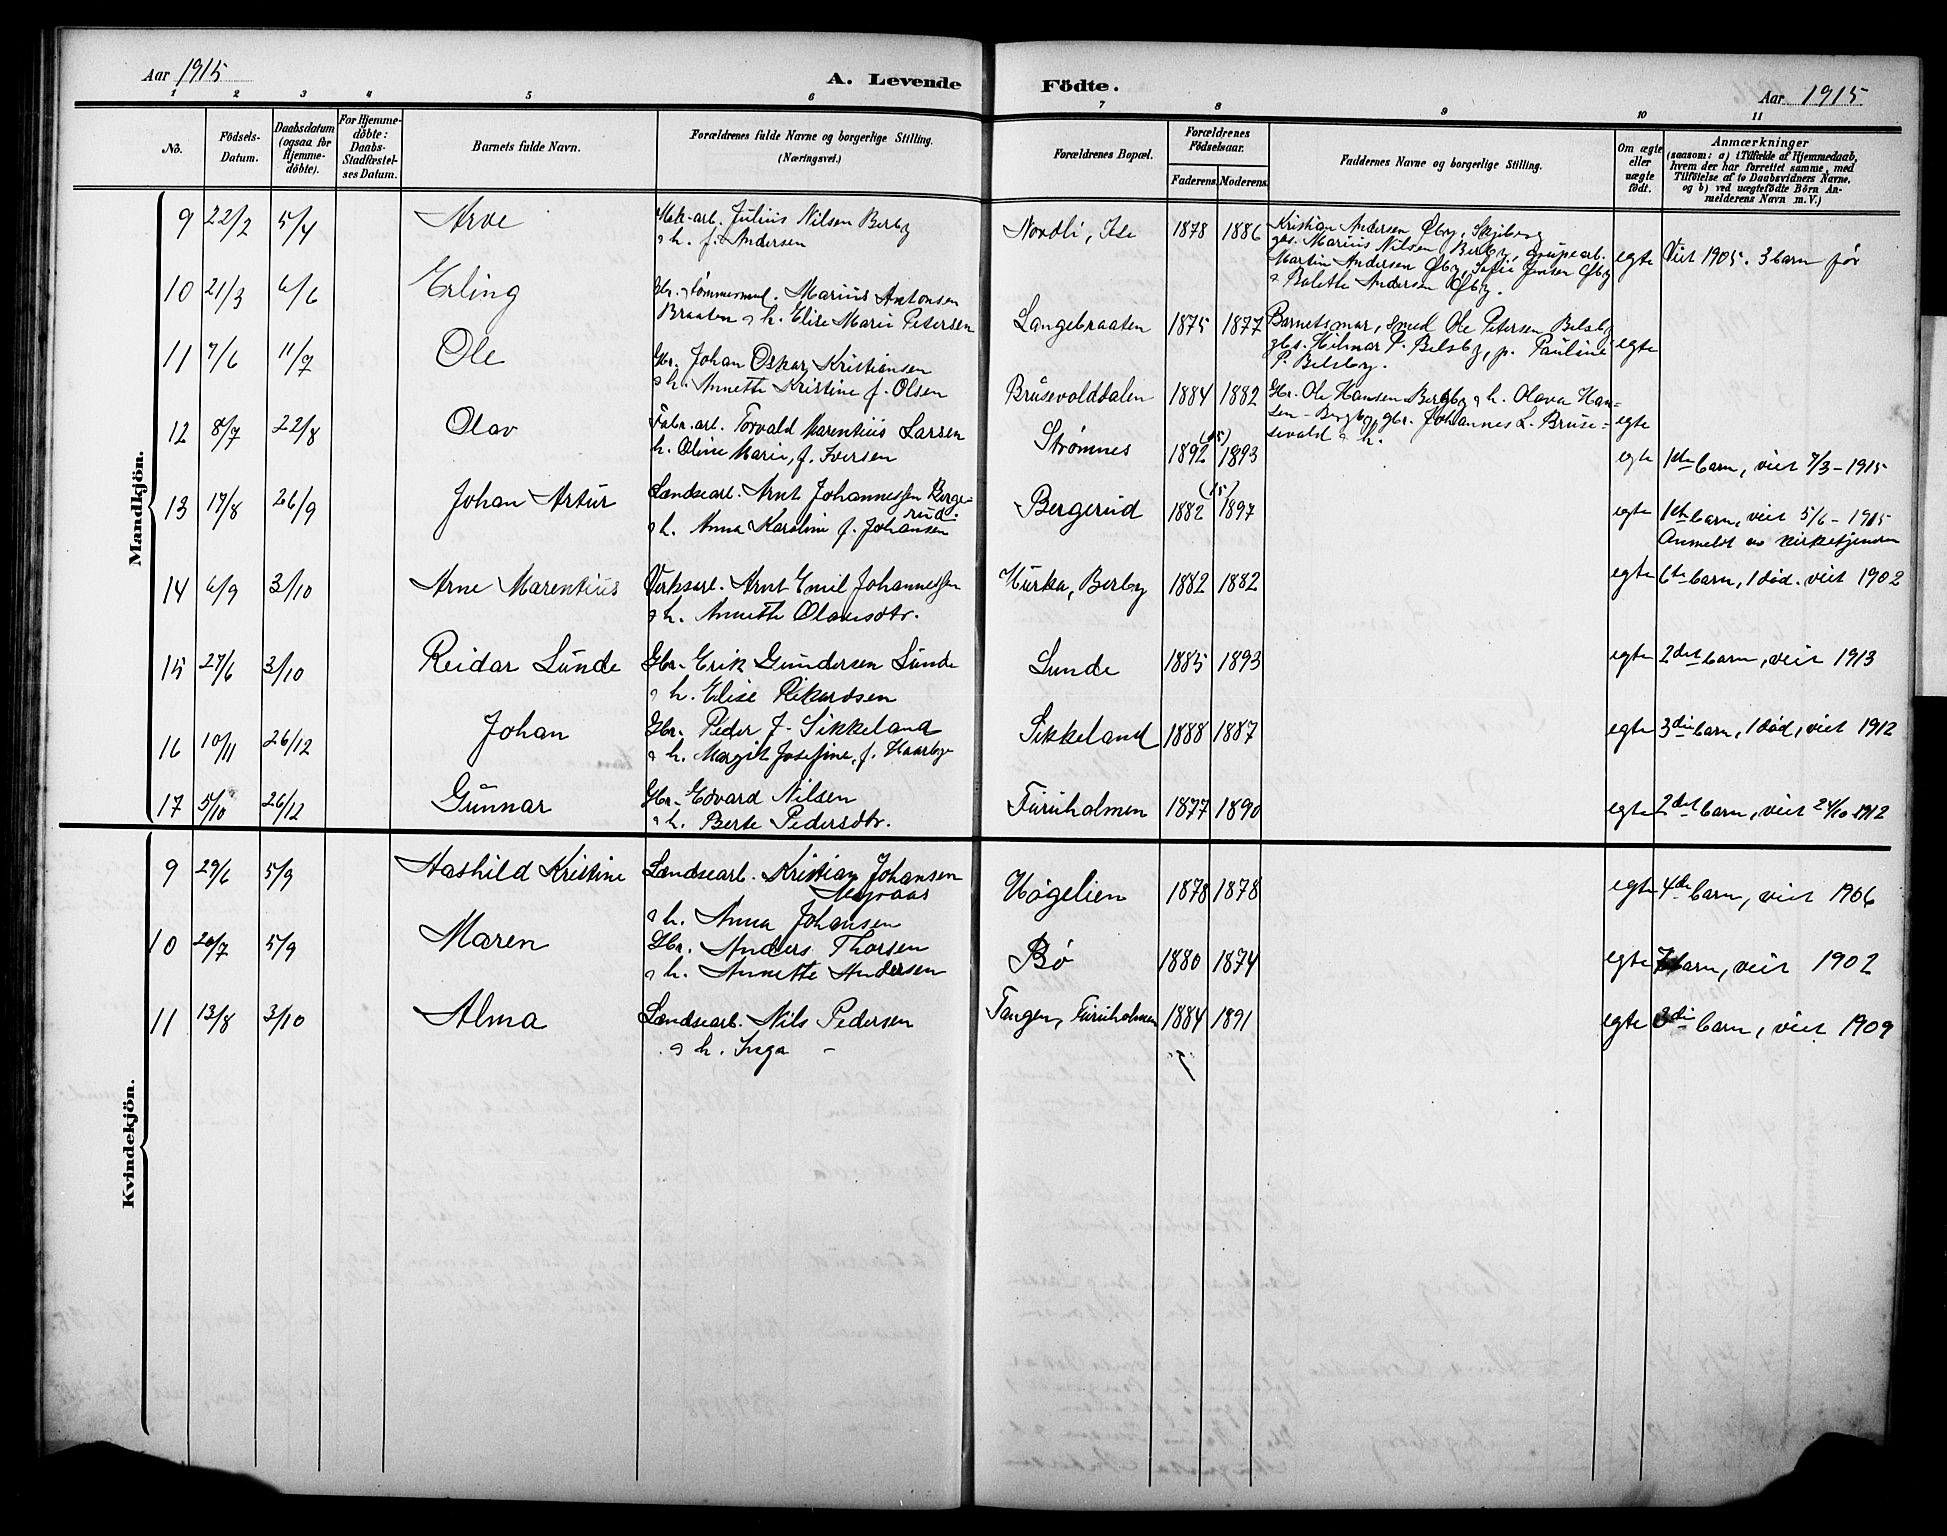 Aar 1915
A. Levende Födte.
Aar 1915
1 2 3 4 5 6 7 8 9 10 11
No.
Födsels-Datum.
Daabsdatum (ogsaa for Hjemme-döbte).
For Hjemme-döbte: Daabs-Stadfæstel-ses Datum.
Barnets fulde Navn.
Forældrenes fulde Navne og borgerlige Stilling.
(Næringsvei.)
Forældrenes Bopæl.
Forældrenes Födselsaar.
Faderens. Moderens.
Faddernes Navne og borgerlige Stilling.
Om ægte eller uægte födt.
Anmærkninger
(saasom: a) i Tilfælde af Hjemmedaab,
hvem der har forrettet samme, med
Tilföielse af to Daabsvidners Navne.
og b) ved uægtefödte Börn An-
melderens Navn m. V.)
Mandkjön.
9 22/2 5/4 Arve
Julius Nilsen Berby
& h. f. Andersen
Nordli, Ise 1878 1886
Kristian Andersen Øby, Skjeberg
gbs. Marius Nilsen Berby, grubearb.
Martin Andersen Øby, Sofie Jensen Øby
& Balette Andersen Øby.
egte Viet 1905. 3 barn før
10 21/3 6/6 Erling
Gbr. & tømmerm. Marius Antonsen
Braaten & h. Elise Marie Petersen
Langebraaten 1875 1877
Barnets mor, smed Ole Petersen Belsby
gbs. Hilmar P. Belsby, p. Pauline
P. Belsby.
egte
11 7/6 11/7 Ole
Gbr. Johan Oskar Kristiansen
& h. Annette Kristine f. Olsen
Brusevolddalen 1884 1882
Gbr. Ole Hansen Bergby & h. Olava Han-
sen-Bergby, gbr. Johannes L. Bruse-
vold & h.
egte
12 8/7 22/8 Olav
Fabr. arb. Torvald Marentius Larsen
h. Oline Marie, f. Iversen
Strømnes 1892 (15) 1893
egte 1ste barn, viet 7/3-1915
13 17/8 26/9 Johan Artur
Landsearb. Arnt Johannessen Berge-
rud.
& h. Anna Karoline f. Johansen
Bergerud 1882 (15) 1897
egte 1ste barn, viet 5/6-1915
Anmeldt av kirketjeneren
14 6/9 3/10 Arne Marentius
Verksarb. Arnt Emil Johannessen
& h. Annette Olausdtr.
Hurka, Berby 1882 1882
egte 6te barn, 1 død. viet 1902
15 27/6 3/10 Reidar Lunde
Gbr. Erik Gundersen Lunde
& h. Elise Rikardsen
Lunde 1885 1893
egte 2det barn, viet 1913
16 10/11 26/12 Johan
Gbr. Peder J. Sikkeland
& h. Margit Josefine, f. Haarbye
Sikkeland 1888 1887
egte 3die barn, 1 død, viet 1912
17 5/10 26/12 Gunnar
Gbr. Edvard Nilsen
& h. Berte Pedersdtr.
Furuholmen 1877 1890
egte 2det barn, viet 24/10 1912
Kvindekjön.
9 29/6 5/9 Aashild Kristine
Landsearb. Kristian Johansen
Myraas
& h. Anna Johansen
Høgelien 1878 1878
egte 4de barn, viet 1906
10 20/7 5/9 Maren
Gbr. Anders Thorsen
& h. Annette Andersen
Bø 1880 1874
egte barn, viet 1902
11 13/8 3/10 Alma
Landsearb. Nils Pedersen
& h. Inga -
Tangen, Furuholmen 1884 1891
egte 3die barn, viet 1909